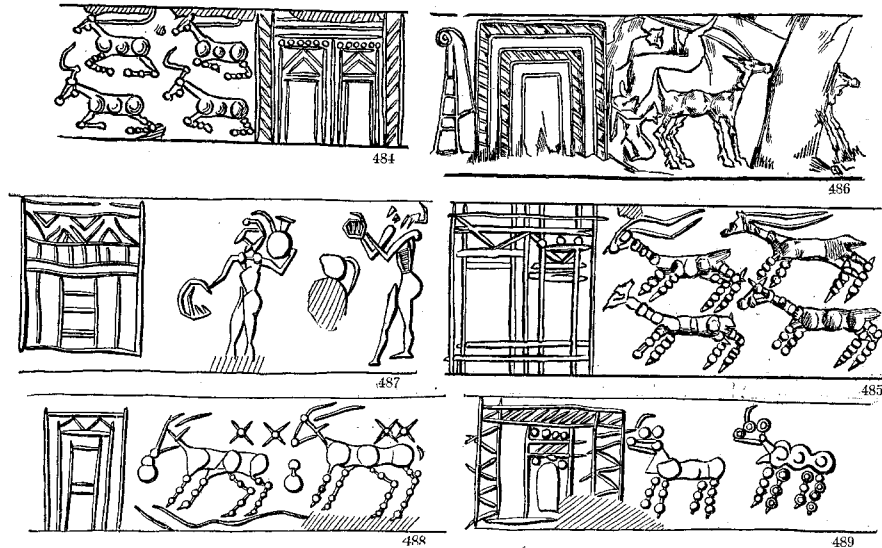 484
486
487
485
488
489